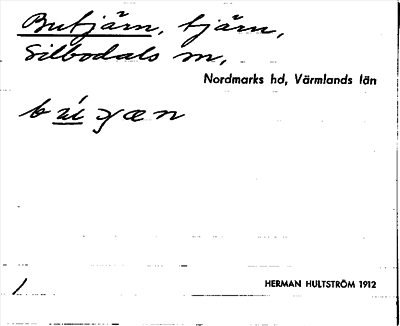 Butjärn, tjärn,
Silbodals m,
Nordmarks hd, Värmlands län
HERMAN HULTSTRÖM 1912